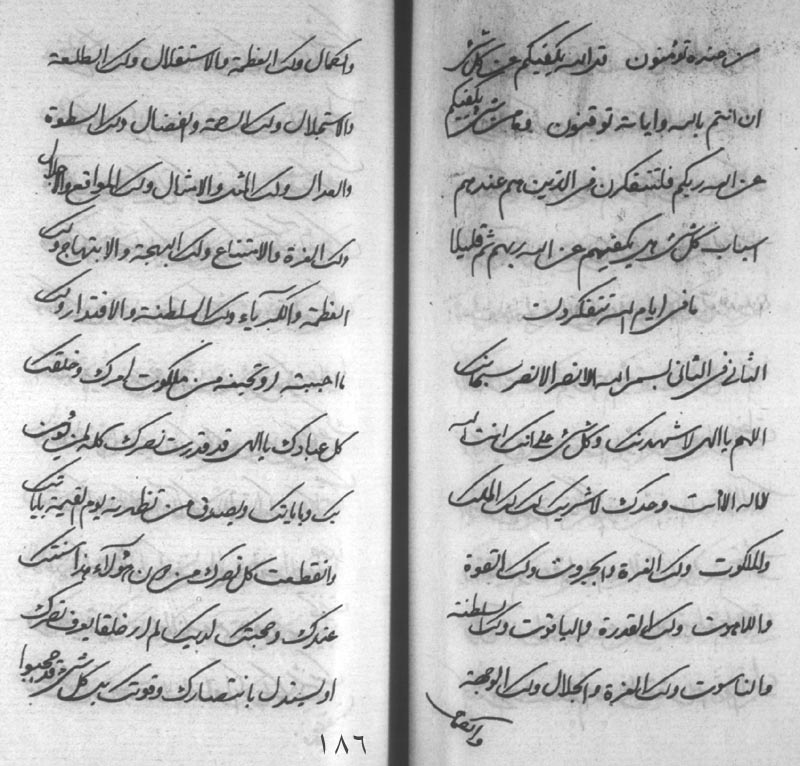 من عنده تؤمنون قد الله يكفيكم عن كل شيء
ان انتم بالله واياته توقنون وما من شيء يكفيكم
عن الله ربكم فلتتفكرن في الذين هم عندهم
اسباب كل شيء هل يكفيهم عن الله ربهم ثم قليلا
ما في ايام الله تتفكرون
الثاني في الثاني بسم الله الانصر الانصر سبحانك
اللهم يا الهي لاشهدنك وكل شيء على انك انت الله
لا اله الا انت وحدك لا شريك لك لك الملك
والملكوت ولك العزة والجبروت ولك القوة
واللاهوت ولك القدرة والياقوت ولك السلطنة
والناسوت ولك العزة والجلال ولك الوجهة
والجمال
والكمال ولك العظمة والاستقلال ولك الطلعة
والاستجلال ولك الرحمة والفضال ولك السطوة
والعدال ولك المثل والامثال ولك المواقع والاجلال
ولك العزة والامتناع ولك البهجة والابتهاج ولك
العظمة والكبرياء ولك السلطنة والاقتدار ولك
ما احببته او تحبنه من ملكوت امرك وخلقك
كل عبادك يا الهي قد قدرت نصرك كله لمن يؤمن
بك وباياتك ويصدق من تظهرنه يوم القيمة باياتك
وانقطعت كل نصرك من دون هؤلاء هذا سنتك
عندك ومحبتك لديك لم ار خلقا يعرف نصرك
او يستدل بانتصارك وقوتك بك كل شيء قد حجبوا
١٨٦